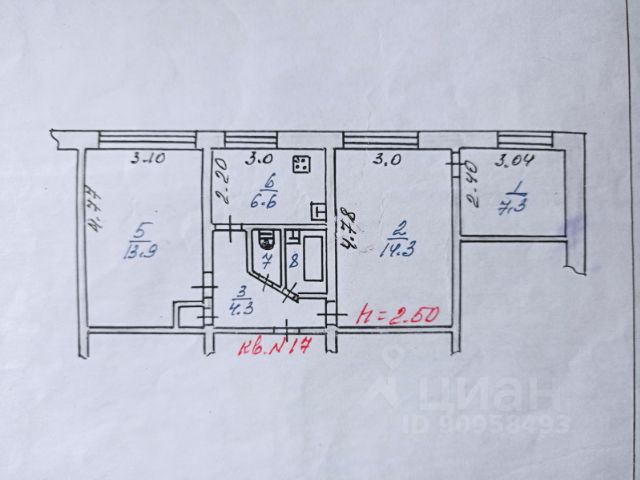 3.10
4.77
5
13.9
3.0
2.20
6
6.6
3.0
4.78
2
14.3
3.04
2.40
1
7.3
7
8
3
4.3
h=2.50
кв.N17
циан
ID 90958493